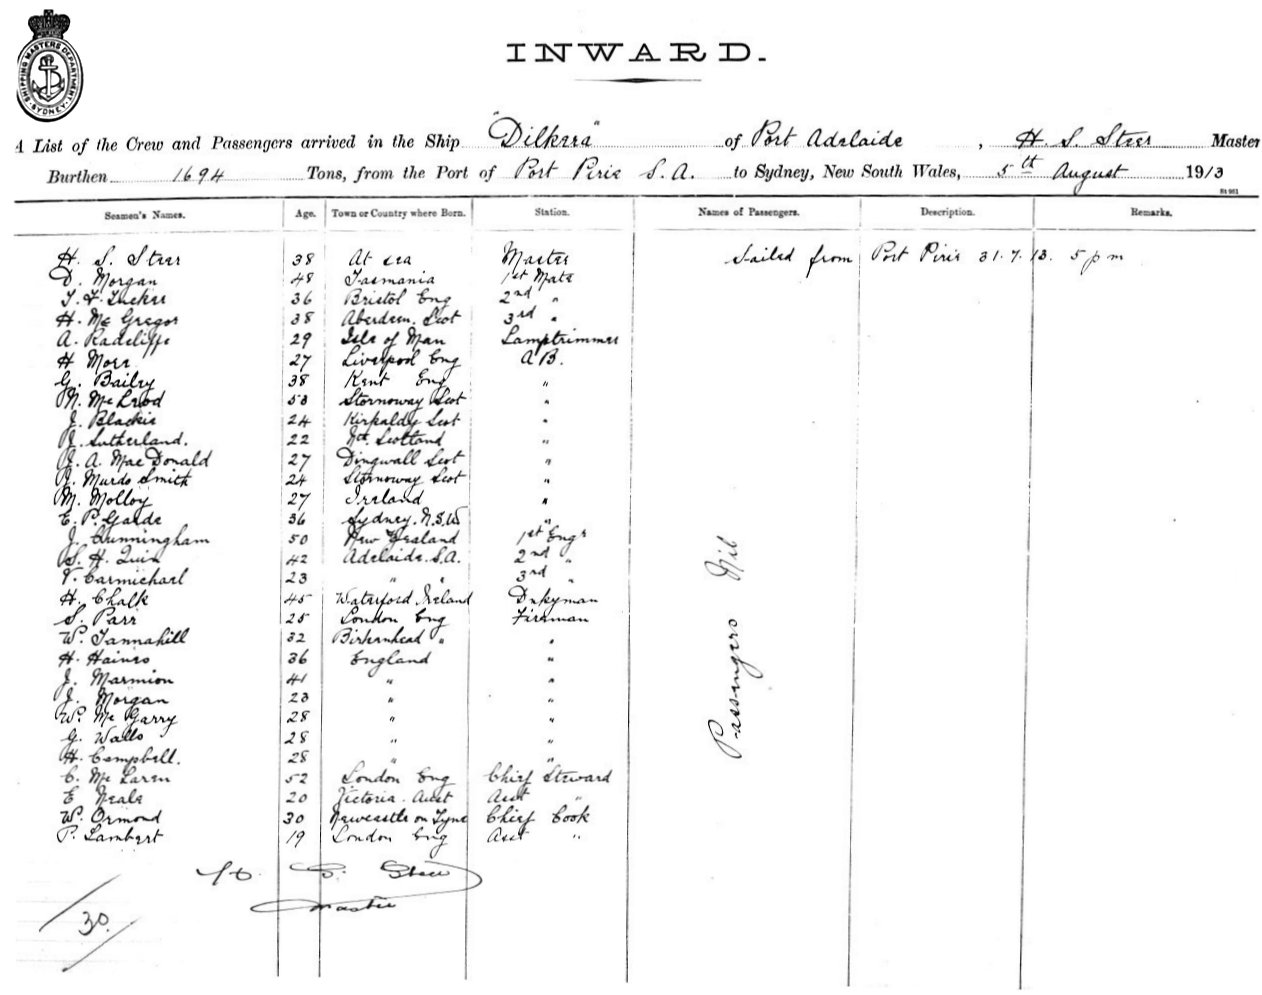 SHIPPING MASTERS DEPARTMENT · SYDNEY ·
INWARD.
A List of the Crew and Passengers arrived in the Ship "Dilkera" of Port Adelaide, H. S. Steer Master
Burthen 1694 Tons, from the Port of Port Pirie S.A. to Sydney, New South Wales, 5th August 1913
Seamen's Names. Age. Town or Country where Born. Station. Names of Passengers. Description. Remarks.
H. S. Steer 38 At sea Master Sailed from Port Pirie 31.7.13. 5 pm
D. Morgan 48 Tasmania 1st Mate
T. F. Tucker 36 Bristol Eng 2nd "
H. Mc Gregor 38 Aberdeen. Scot 3rd "
A. Radcliffe 29 Isle of Man Lamptrimmer
H Morr 27 Liverpool Eng A B.
G. Bailey 38 Kent Eng "
N. Mc Leod 53 Stornoway Scot "
J. Blackie 24 Kirkaldy Scot "
J. Sutherland. 22 Scotland "
J. A. Mac Donald 27 Dingwall Scot "
J. Murdo Smith 24 Stornoway Scot "
M. Molloy 27 Ireland "
E. P. Garde 36 Sydney. N.S.W "
J. Cunningham 50 New Zealand 1st Engr
S. H. Quin 42 Adelaide. S.A. 2nd "
V. Carmichael 23 " " 3rd "
H. Chalk 45 Waterford Ireland Dnkyman
S. Parr 25 London Eng Fireman
W. Tannahill 32 Birkenhead " "
H. Haines 36 England "
J. Marmion 41 " "
J. Morgan 23 " "
W. Mc Garry 28 " "
G. Walls 28 " "
H. Campbell. 28 " "
C. Mc Laren 52 London Eng Chief Steward
E Neale 20 Victoria. Aust Asst "
W. Ormond 30 Newcastle on Tyne Chief Cook
P. Lambert 19 London Eng Asst "
Passengers Nil
H. S. Steer
Master
30.